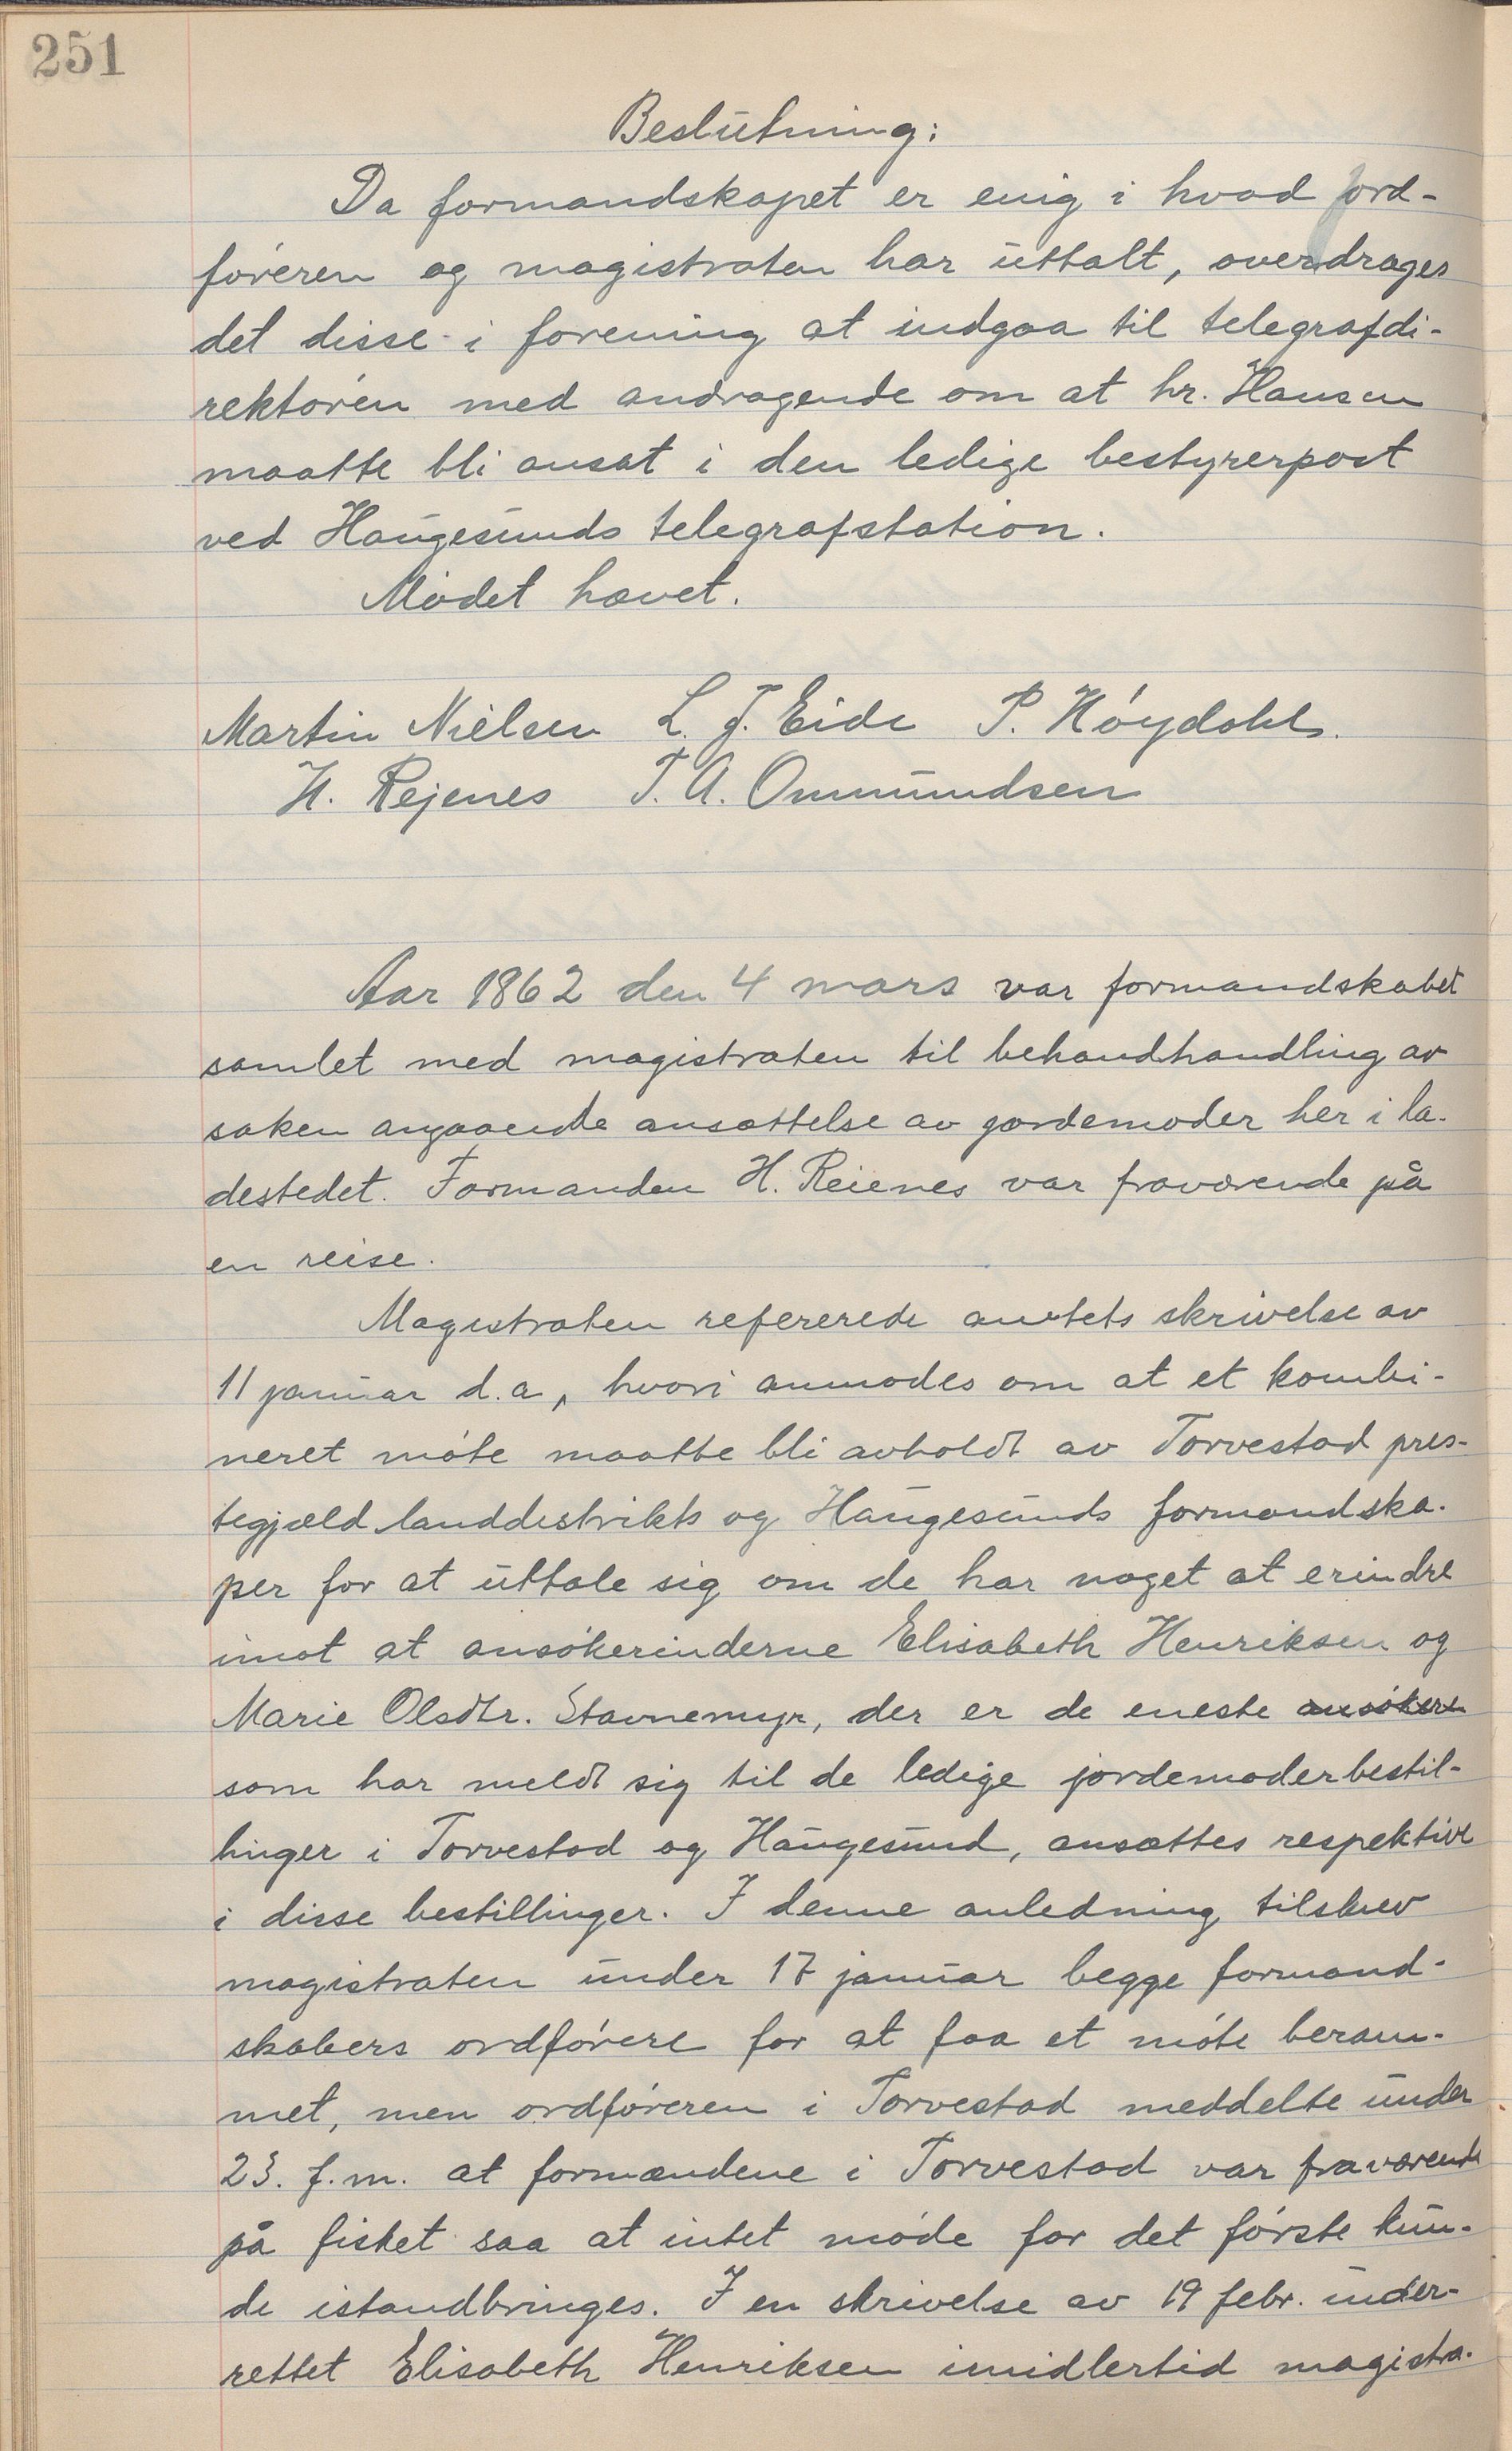 251
Beslutning:
Da formandskapet er enig i hvad ord-
føreren og magistraten har uttalt, overdrages
det disse i forening at indgaa til telegrafdi-
rektøren med andragende om at hr. Hansen
maatte bli ansat i den ledige bestyrerpost
ved Haugesunds telegrafstation.
Mødet hævet.
Martin Nielsen L. J. Eide P. Høydahl.
H. Rejenes T. A. Ommundsen
Aar 1862 den 4 mars var formandskabet
samlet med magistraten til behandhandling av
saken angaaende ansættelse av gordemoder her i la-
destedet. Formanden H. Reienes var fraværende på
en reise.
Magistraten refererede amtets skrivelse av
11 januar d.a, hvori anmodes om at et kombi-
neret møte maatte bli avholdt av Torvestad pres-
tegjæld landdistrikts og Haugesunds formandska-
per for at uttale sig om de har noget at erindre
imot at ansøkerinderne Elisabeth Henriksen og
Marie Olsdtr. Stavnemyr, der er de eneste ansøkere
som har meldt sig til de ledige jordemoderbestil-
linger i Torvestad og Haugesund, ansættes respektive
i disse bestillinger. I denne anledning tilskrev
magistraten under 17 januar begge formand-
skabers ordførere for at faa et møte beram-
met, men ordføreren i Torvestad meddelte under
23. f.m. at formændene i Torvestad var fraværende
på fisket saa at intet møde for det første kun-
de istandbringes. I en skrivelse av 19 febr. under-
rettet Elisabeth Henriksen imidlertid magistra-